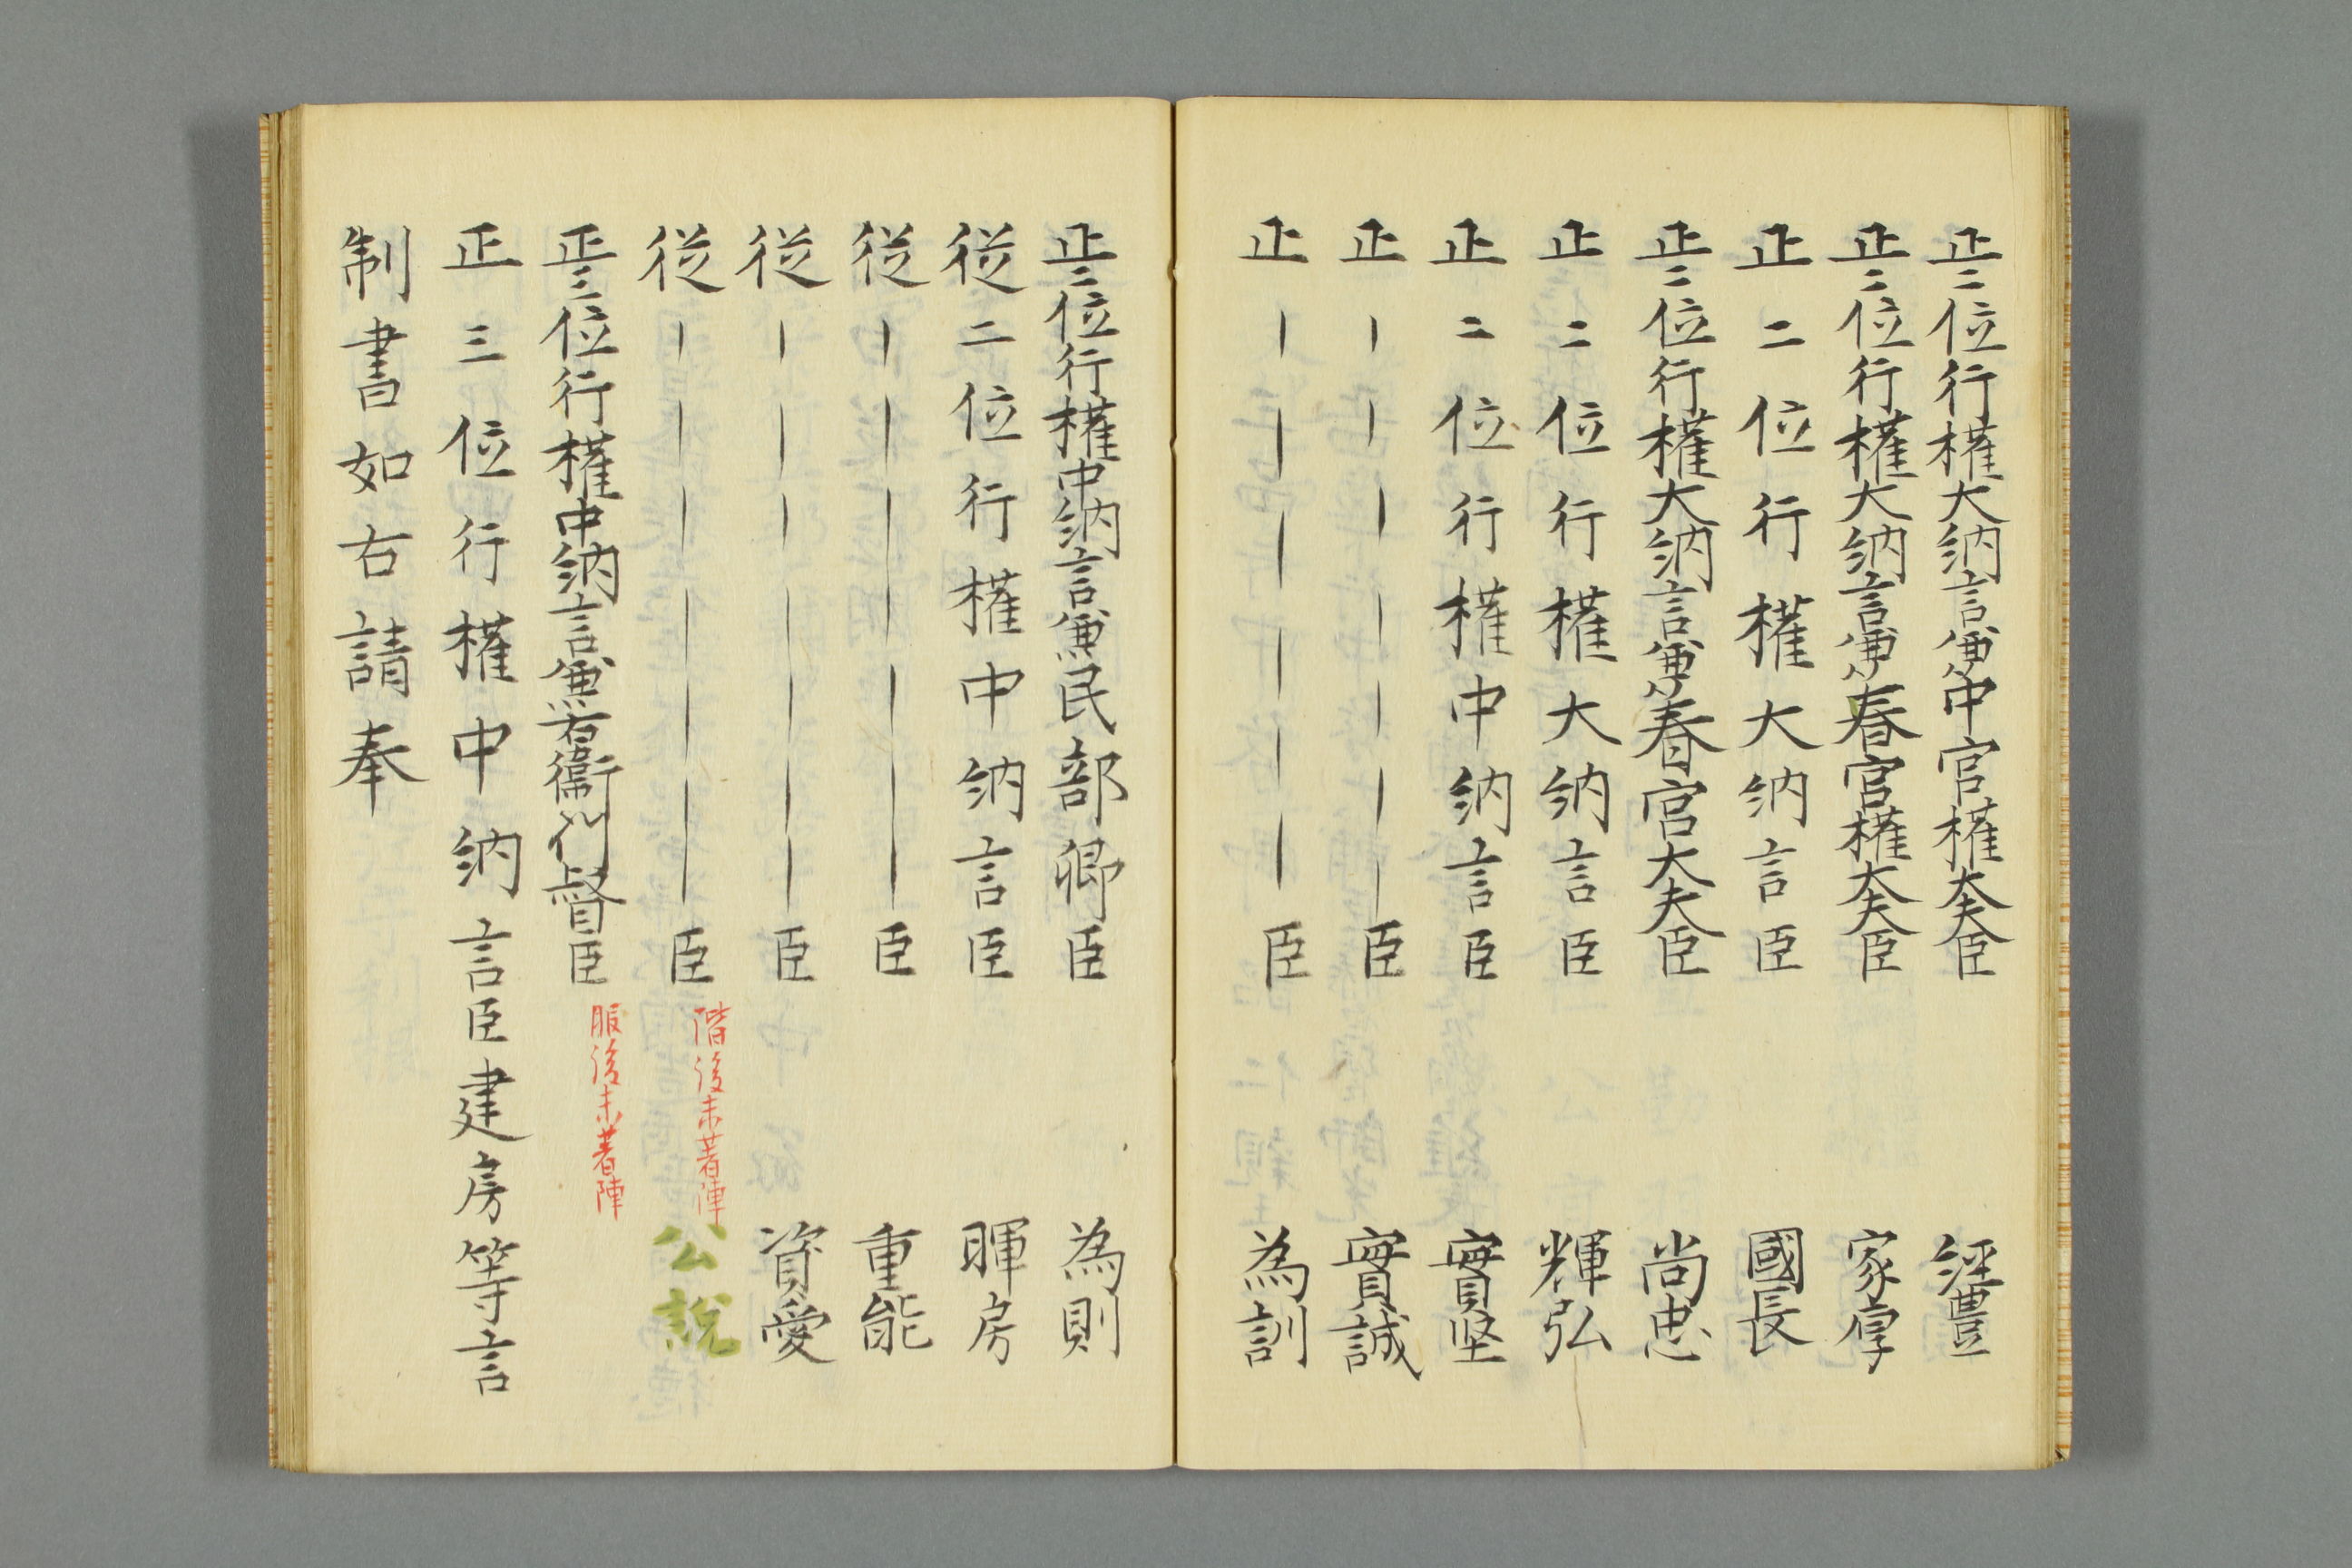 正二位行權大納言兼中宮權大夫臣 經豊
正二位行權大納言兼春宮權大夫臣 家厚
正二位行權大納言臣 國長
正二位行權大納言兼春宮大夫臣 尚忠
正二位行權大納言臣 輝弘
正二位行權中納言臣 實堅
正――――――臣 實誠
正――――――臣 為訓
正二位行權中納言兼民部卿臣 為則
從二位行權中納言臣 暉房
從――――――臣 重能
從――――――臣 資愛
從――――――臣 階後未著陣 公說
正三位行權中納言兼右衛門督臣 服後未著陣
正三位行權中納言臣建房等言
制書如右請奉